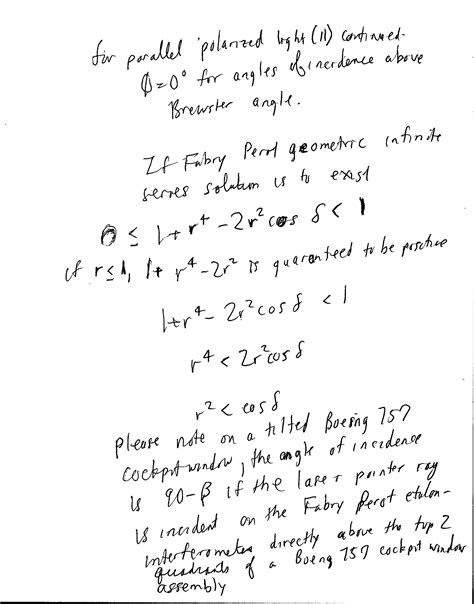 for parallel polarized light (11) continued.
∅=0° for angles of incerdence above
Brewster angle.
If Fabry Perot geometric infinite
series solution is to exist
0 ≤ 1+r⁴-2r²cos δ < 1
if r≤1, 1+r⁴-2r² is guaranteed to be positive
1+r⁴-2r²cos δ < 1
r⁴ < 2r²cos δ
r² < cos δ
please note on a tilted Boeing 757
cockpit window, the angle of incidence
is 90-β if the laser pointer ray
is incident on the Fabry Perot etalon-
interferometer directly above the top 2
quadrants of a Boeing 757 cockpit window
assembly